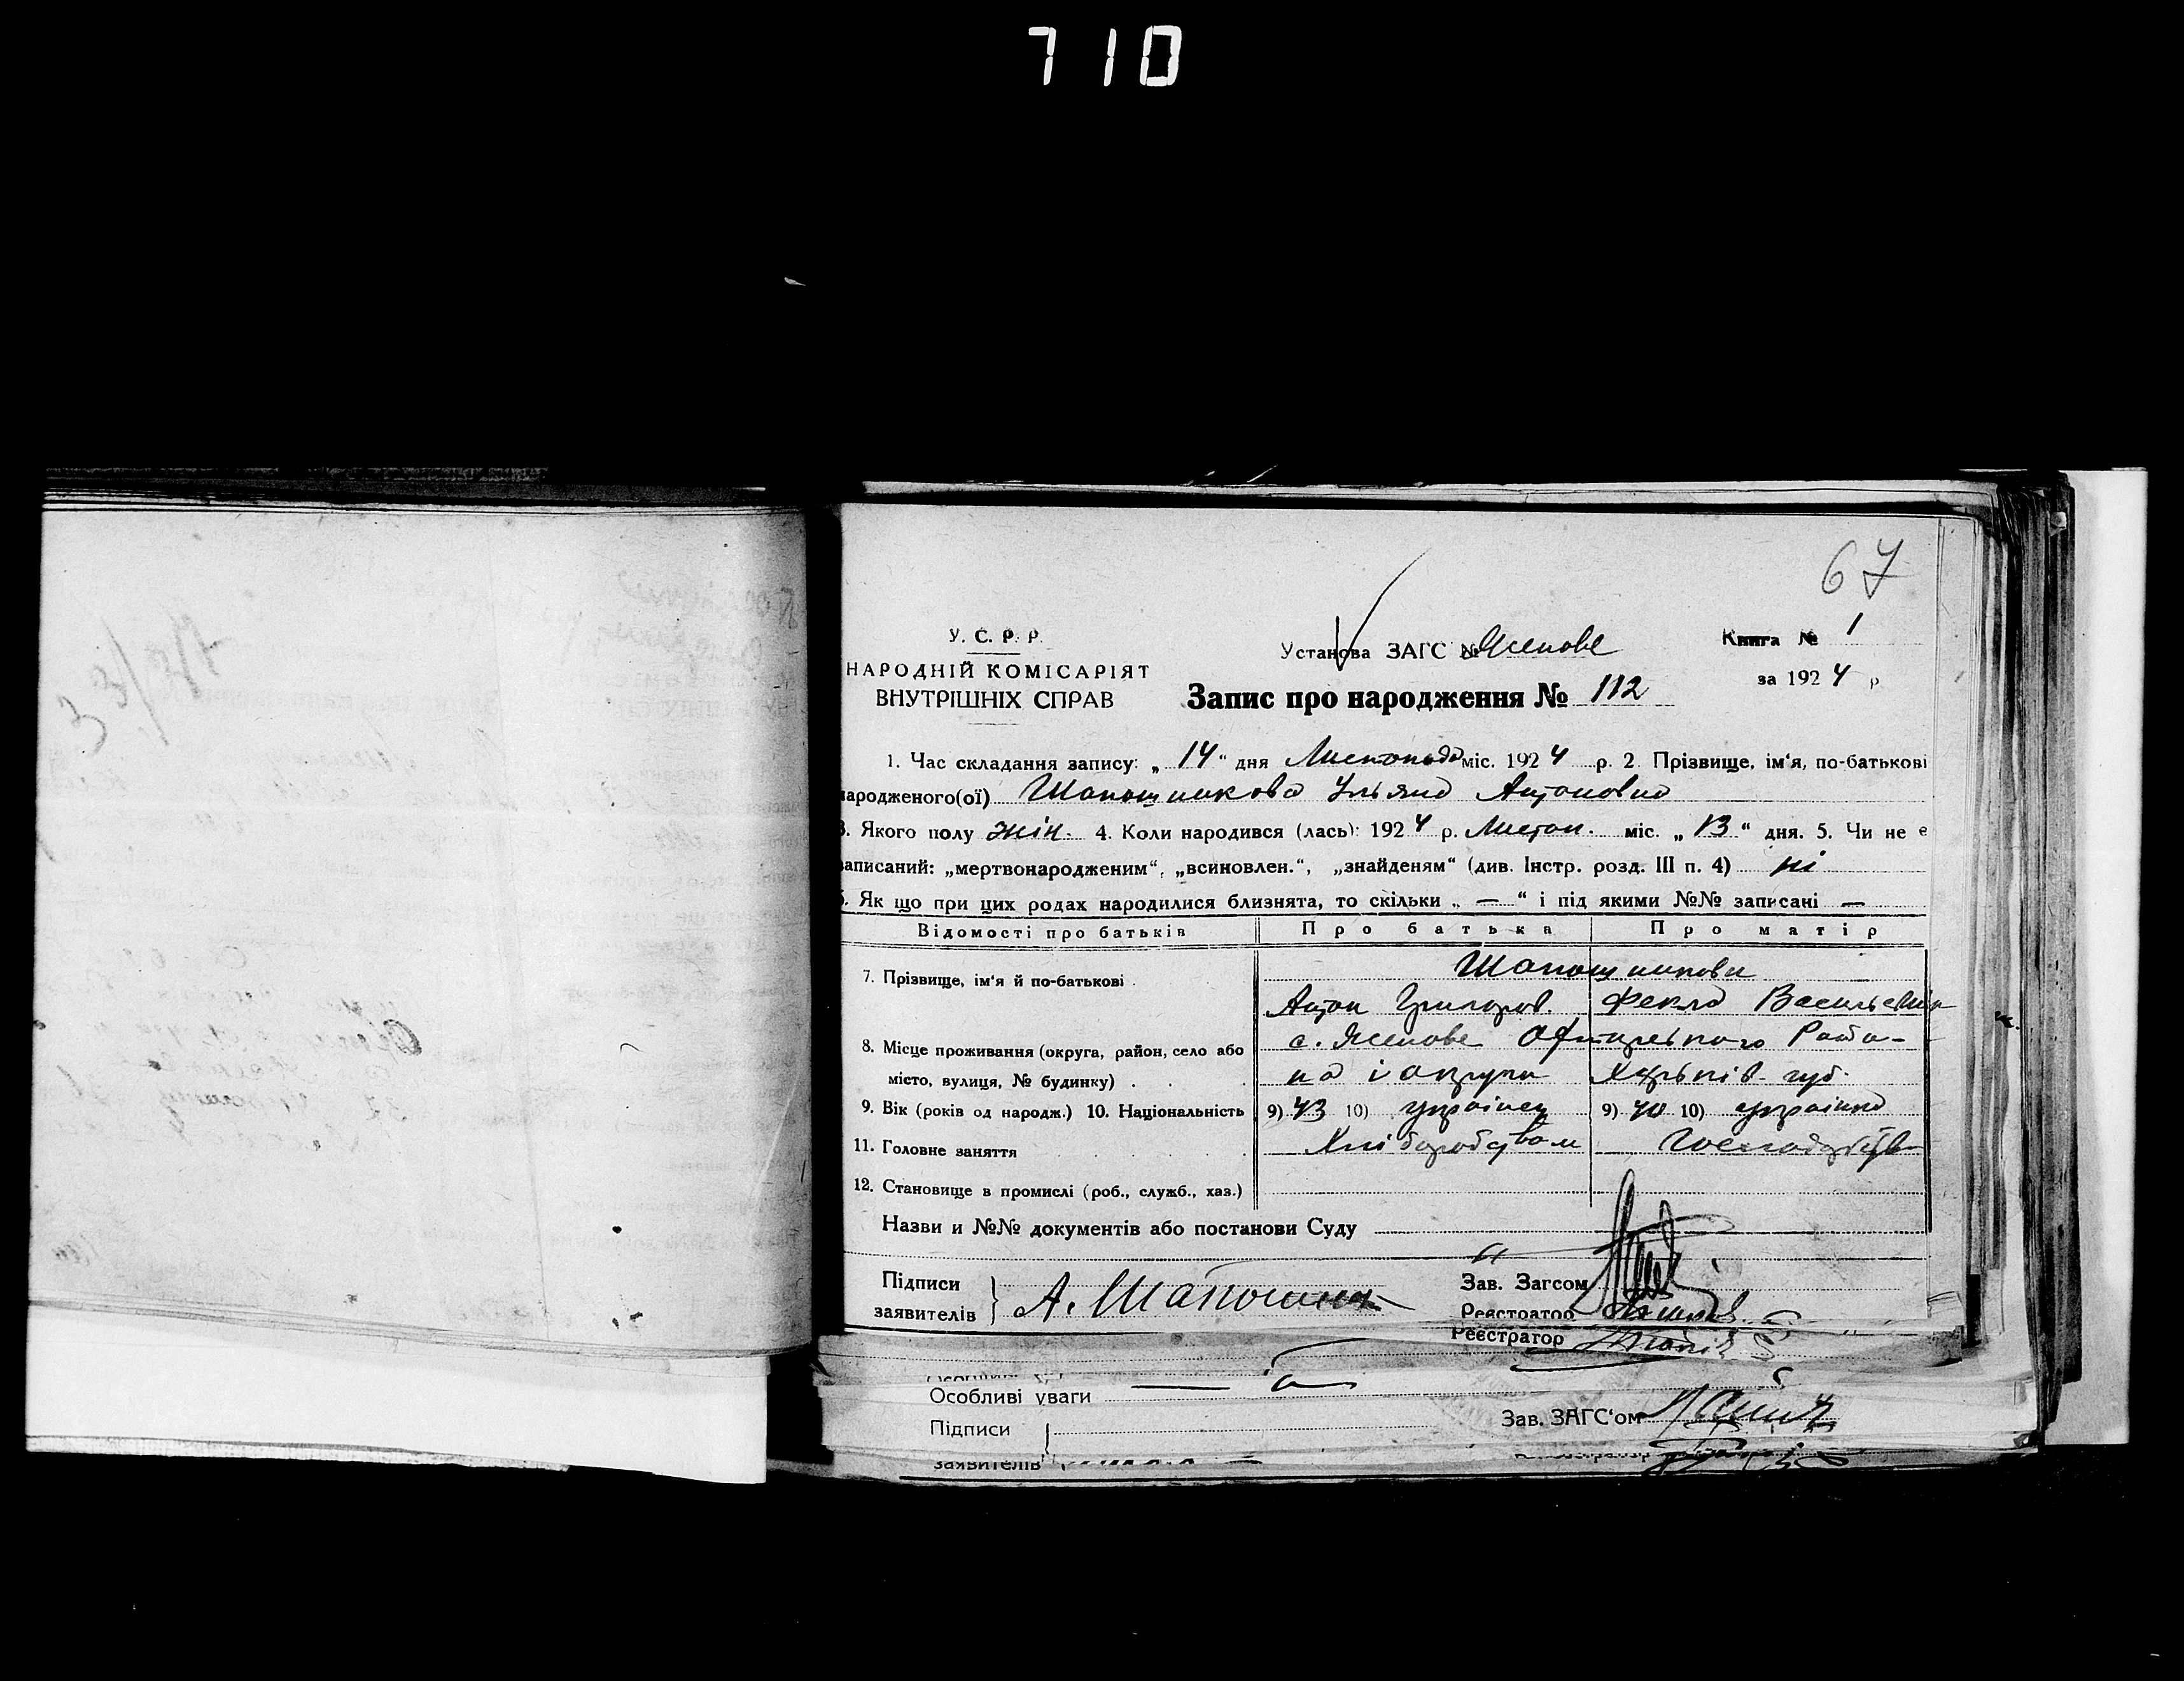 710
67
У. С. Р. Р.
НАРОДНІЙ КОМІСАРІЯТ
ВНУТРІШНІХ СПРАВ
Установа ЗАГС № Ясенове
Книга № 1
за 1924 р
Запис про народження № 112
1. Час складання запису: „ 14 " дня Листопада міс. 1924 р. 2. Прізвище, ім'я, по-батькові
народженого(ої) Шапошникова Ульяна Антоновна
3. Якого полу жін. 4. Коли народився (лась): 1924 р. Листоп. міс. „ 13 " дня. 5. Чи не є
записаний: „мертвонародженим", „всиновлен.", „знайденям" (див. Інстр. розд. III п. 4) ні
6. Як що при цих родах народилися близнята, то скільки „ — " і під якими №№ записані —
Відомості про батьків Про батька Про матір
7. Прізвище, ім'я й по-батькові Шапошникови
Антон Григоров. Фекла Васильевна
8. Місце проживання (округа, район, село або місто, вулиця, № будинку)
с. Ясенове Райо-
на і округи Харьків. губ.
9. Вік (років од народж.) 10. Національність 9) 43 10) українец 9) 40 10) українка
11. Головне заняття Хліборобством
12. Становище в промислі (роб., служб., хаз.)
Назви и №№ документів або постанови Суду
Підписи
заявителів } А. Шапошник
Зав. Загсом
Реєстратор
Реєстратор
Особливі уваги
Підписи
заявителів
Зав. ЗАГС'ом